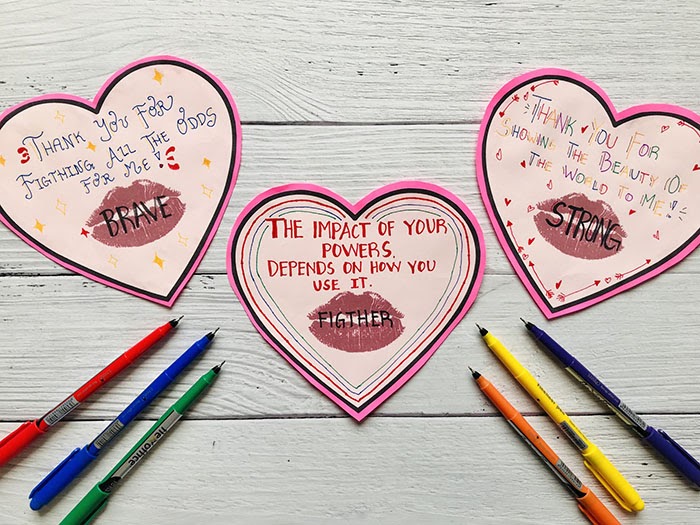 THANK YOU FOR
FIGTHING ALL THE ODDS
FOR ME!
BRAVE
THE IMPACT OF YOUR
POWERS.
DEPENDS ON HOW YOU
USE IT.
FIGTHER
THANK YOU FOR
SHOWING THE BEAUTY OF
THE WORLD TO ME!!
STRONG
office